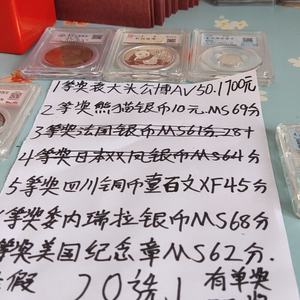 1等奖袁大头公博AV50.1700元
2等奖熊猫银币10元.MS69分
3等奖法国银币MS61分.28十
4等奖日本双凤银币MS64分
5等奖四川铜币壹百文XF45分
等奖委内瑞拉银币MS68分
等奖美国纪念章MS62分.
假 20选1 有单奖